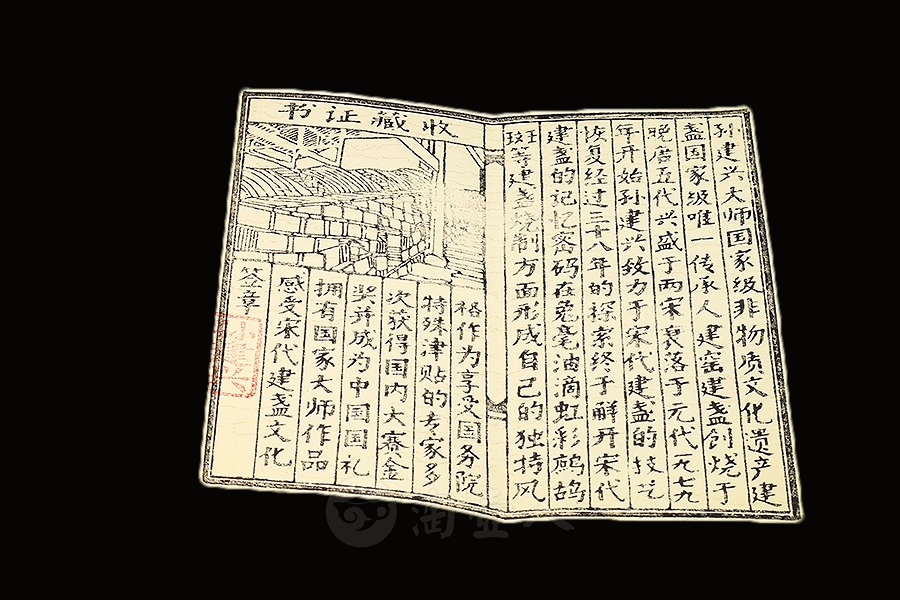 孙建兴大师国家级非物质文化遗产建
盏国家级唯一传承人建窑建盏创烧于
晚唐五代兴盛于两宋衰落于元代一九七九
年开始孙建兴致力于宋代建盏的技艺
恢复经过三十八年的探索终于解开宋代
建盏的记忆密码在兔毫油滴虹彩鹧鸪
斑等建盏烧制方面形成自己的独特风
收藏证书
格作为享受国务院
特殊津贴的专家多
次获得国内大赛金
奖并成为中国国礼
拥有国家大师作品
感受宋代建盏文化
签章